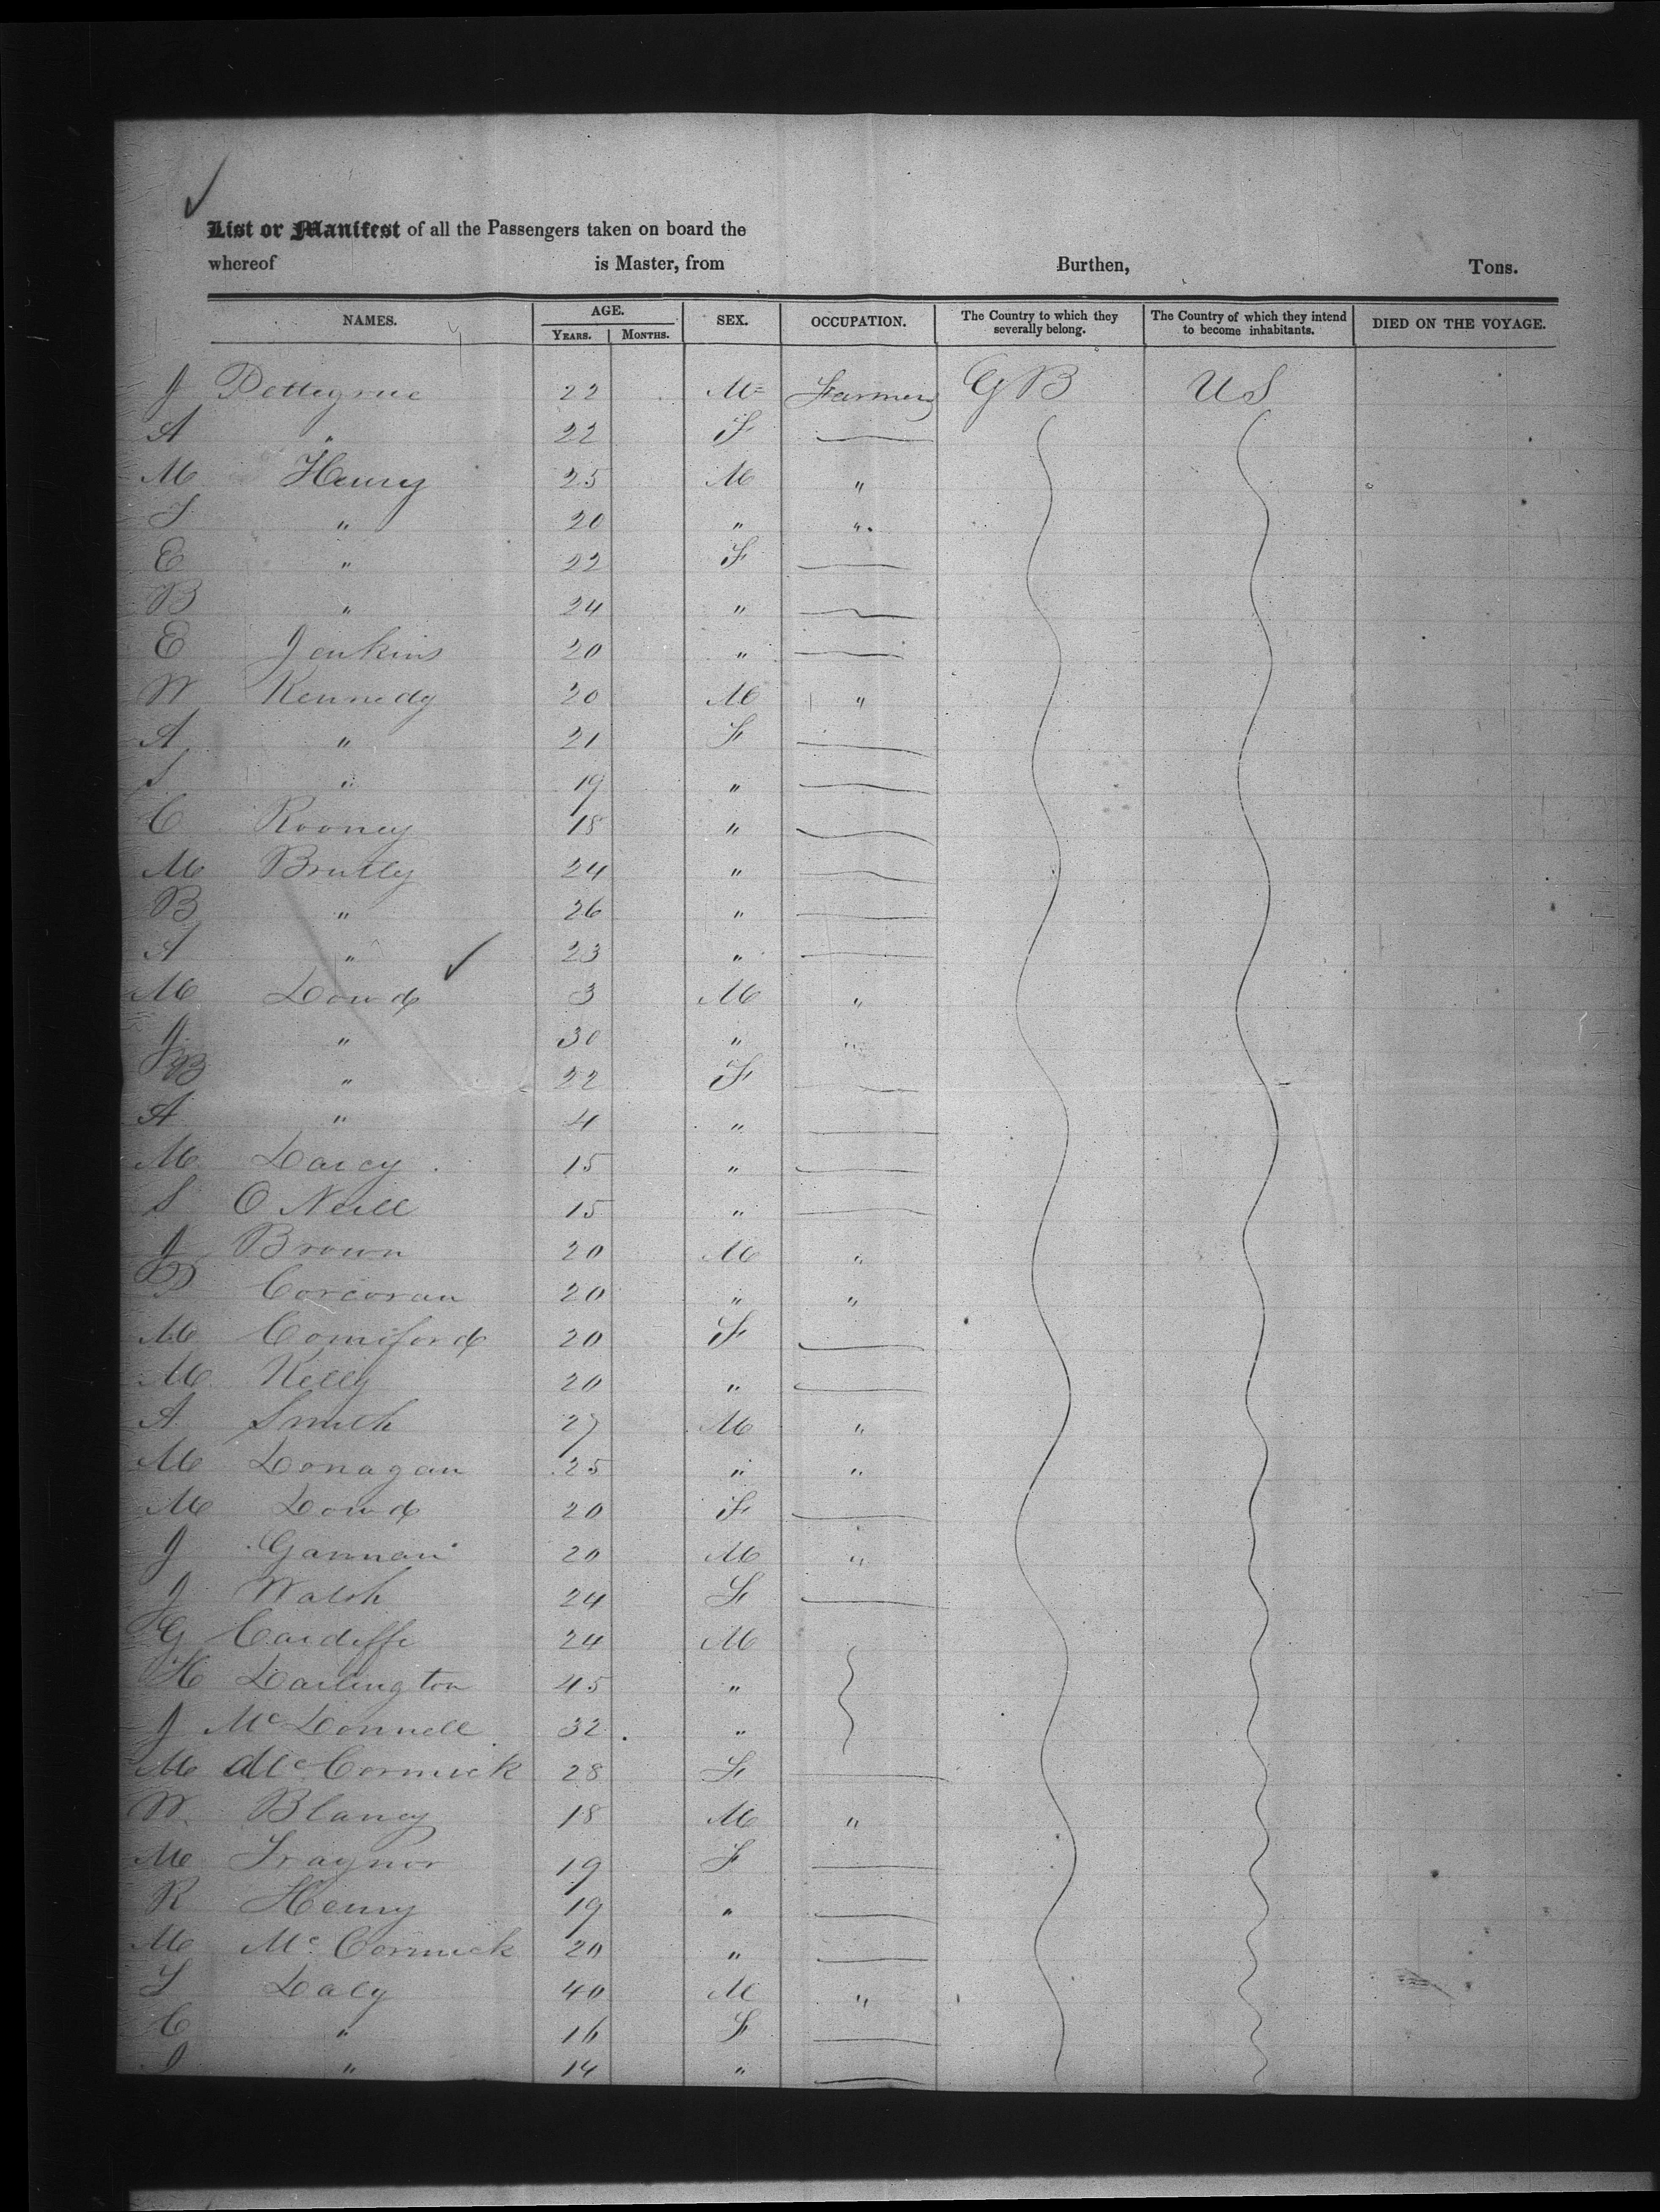 List or Manifest of all the Passengers taken on board the
whereof is Master, from Burthen, Tons.
NAMES. AGE. YEARS. MONTHS. SEX. OCCUPATION. The Country to which they severally belong. The Country of which they intend to become inhabitants. DIED ON THE VOYAGE.
J Pettegrue 22 M Farmers GB US
A " 22 F —
M Henry 25 M "
S " 20 " "
E " 22 F —
B " 24 " —
E Jenkins 20 " —
W Kennedy 20 M "
A " 21 F —
S " 19 " —
C Rooney 18 " —
M 24 " —
B " 26 " —
A " 23 " —
M Dowd 3 M "
J " 30 " "
B " 22 F —
A " 4 " —
M Darcy 15 " —
S O Neill 15 " —
J Brown 20 M "
P Corcoran 20 " "
M Comiford 20 F —
M Kelly 20 " —
A Smith 27 M "
M Donagan 25 " "
M Dowd 20 F —
J Gannan 20 M "
J Walsh 24 F —
G Cardiffe 24 M
H Darlington 45 "
J McDonnell 32 "
M McCormick 28 F —
W Blaney 18 M "
M Traynor 19 F —
R Henry 19 " —
M McCormick 20 " —
Daly 40 M "
C " 16 F —
J " 14 " —